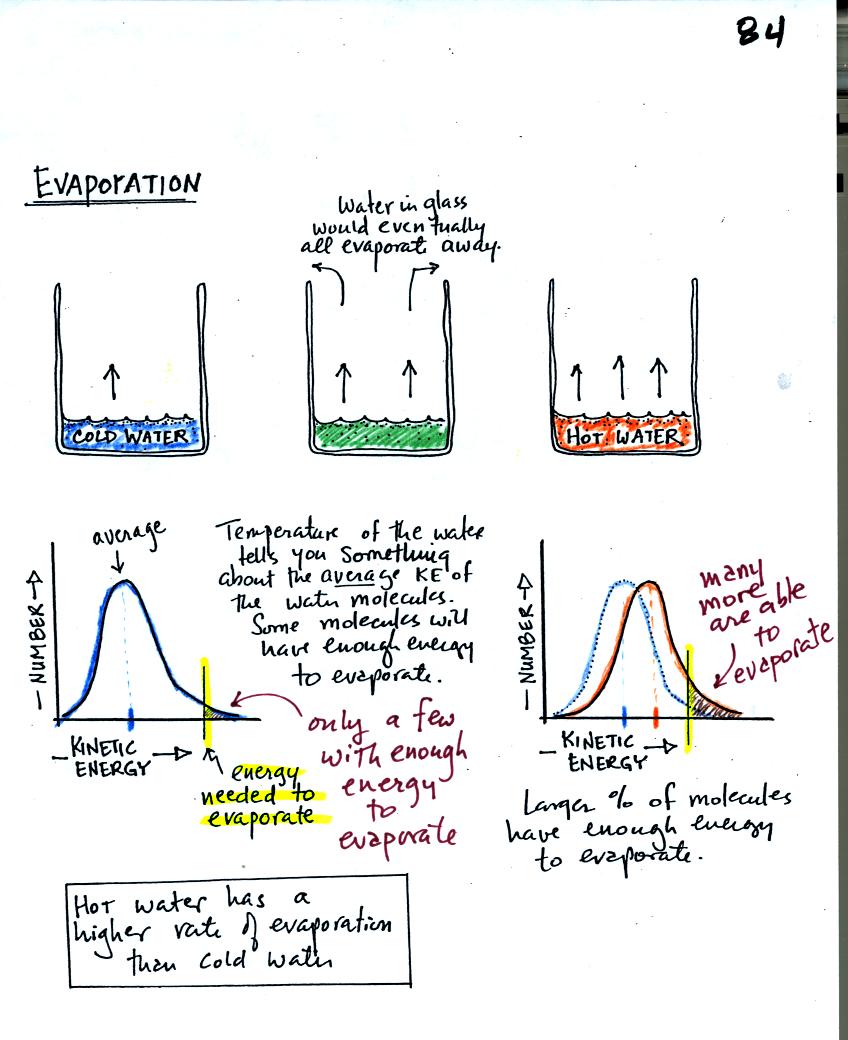 84
EVAPORATION
Water in glass
would eventually
all evaporate away.
COLD WATER
HOT WATER
average
NUMBER
KINETIC
ENERGY
Temperature of the water
tells you something
about the average KE of
the water molecules.
Some molecules will
have enough energy
to evaporate.
only a few
with enough
energy
to
evaporate
energy
needed to
evaporate
NUMBER
KINETIC
ENERGY
many
more
are able
to
evaporate
Larger % of molecules
have enough energy
to evaporate.
Hot water has a
higher rate of evaporation
than cold water